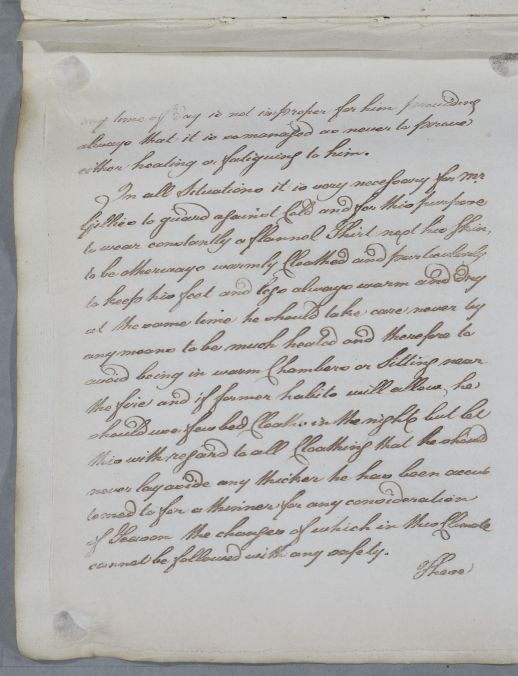 any time of day is not improper for him providing
always that it is so managed as never to prove
either heating or fatiguing to him.
In all Situations it is very necessary for Mr
Gillies to guard against Cold and for this purpose
to wear constantly a flannel Shirt next his Skin,
to be otherways warmly Cloathed and particularly
to keep his feet and legs always warm and Dry
at the same time he should take care never by
any means to be much heated and therefore to
avoid being in warm Chambers or Sitting near
the fire and if former habits will allow, he
should use few bed Cloaths in the night but let
this with regard to all Cloathing that he should
never lay aside any thicker he has been accus
tomed to for a thinner for any consideration
of Season the changes of which in this Climate
cannot be followed with any safety.